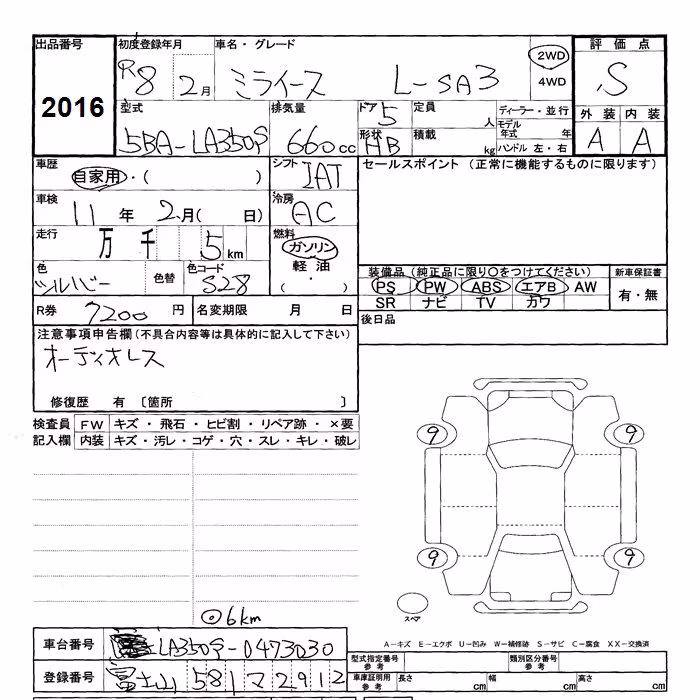 出品番号 初度登録年月 車名・グレード 評価点
2016 R8 2月 ミライース L-SA3 2WD 4WD S
型式 排気量 ドア 定員 ディーラー・並行 外装 内装
5BA-LA350S 660cc 5 人 モデル年式 年 A A
形状 HB 積載 kg ハンドル 左・右
車歴 自家用・( ) シフト IAT セールスポイント (正常に機能するものに限ります)
車検 11年 2月( 日) 冷房 AC
走行 万 千 5km 燃料 ガソリン
軽油
( ・ )
色 シルバー 色替 色コード S28
装備品 (純正品に限り○をつけてください) 新車保証書
PS PW ABS エアB AW 有・無
SR ナビ TV カワ
R券 7200円 名変期限 月 日 後日品
注意事項申告欄 (不具合内容等は具体的に記入して下さい)
オーディオレス
修復歴 有 〔箇所 〕
検査員 FW キズ・飛石・ヒビ割・リペア跡・×要
記入欄 内装 キズ・汚レ・コゲ・穴・スレ・キレ・破レ
9 9
9 9
スペア
◎6km
A－キズ E－エクボ U－凹み W－補修跡 S－サビ C－腐食 XX－交換済
車台番号 LA350S-0473030
型式指定番号 参考 類別区分番号 参考
登録番号 富士山 581 マ 2912
車庫証明用 参考 長さ cm 幅 cm 高さ cm